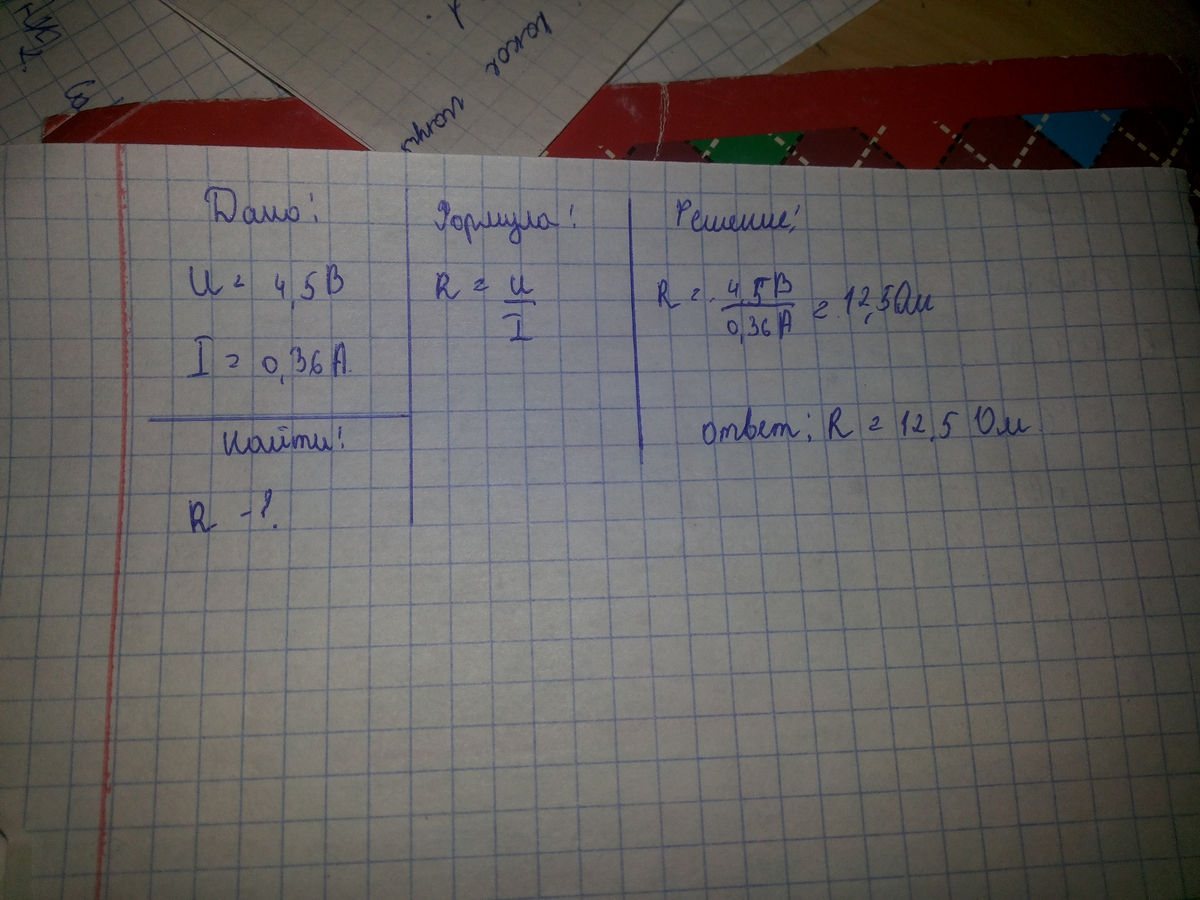 Дано:
U = 4,5 В
I = 0,36 А.
Найти:
R - ?
Формула:
R = U
I
Решение:
R = 4,5 В
0,36 А
= 12,5 Ом
Ответ: R = 12,5 Ом.